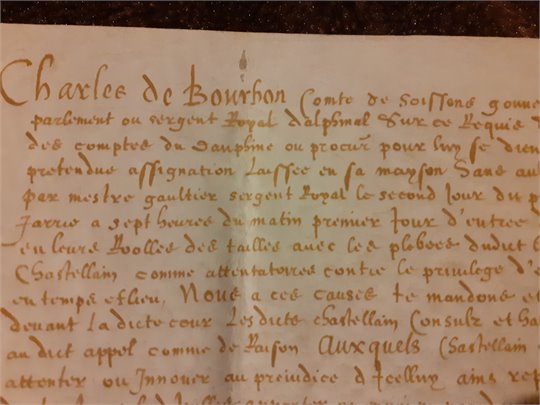 Charles de Bourbon Comte de Soissons gouve
parlement ou sergent Royal dalphinal Sur ce Requis
des comptes du Dauphine ou procur pour luy se dien
pretendue assignation Laissee en sa mayson Sans au
par mestre gaultier sergent Royal le second Jour du p
Jarrie a sept heures du matin premier Jour d'entree
en leurs Roolles des tailles avec les plebees dudit
Chastellain comme attentatoires contre le privilege d'e
en temps et lieu, Nous a ces causes te mandons et
devant La dicte cour Lesdicts chastellain Consulz et ha
audict appel comme de Raison Auxquels Chastellain
attenter ou Innover au prejudice d'Icelluy ains rep